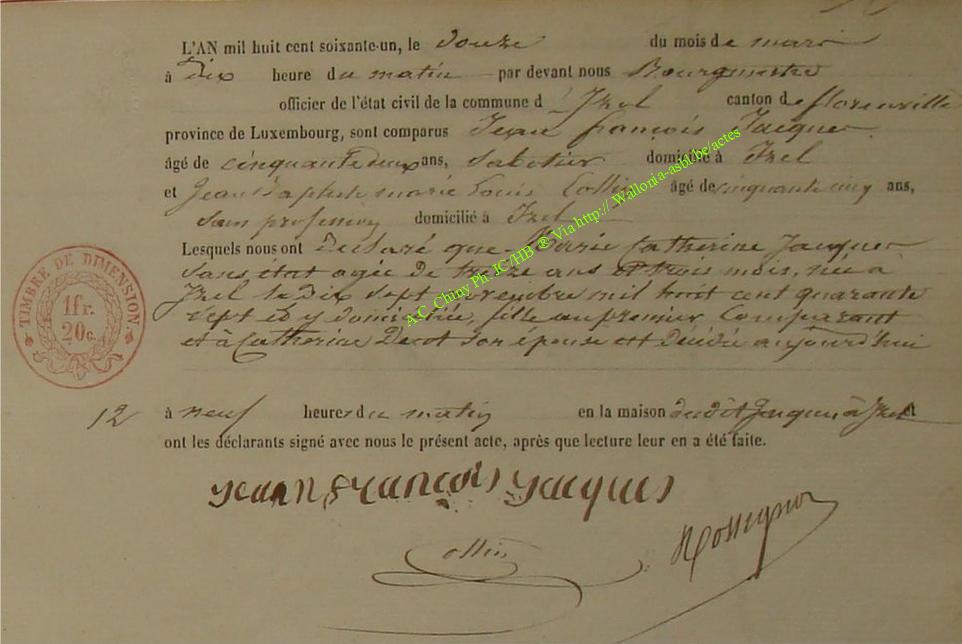 L'AN mil huit cent soixante-un, le douze du mois de mars
à Dix heure du matin par devant nous Bourgmestre
officier de l'état civil de la commune d'Izel canton de florenville
province de Luxembourg, sont comparus Jean françois Jacques
âgé de cinquante deux ans, Sabotier domicilié à Izel
et Jean Baptiste marie Louis Collin âgé de cinquante cinq ans,
Sans profession domicilié à Izel
Lesquels nous ont Déclaré que Marie Catherine Jacques
Sans état agée de treize ans et trois mois, née à
Izel le dix sept mil huit cent quarante
sept et y domiciliée, fille au premier Comparant
et à Catherine Decot Son épouse est Décédée aujourd'hui
12 à neuf heures du matin en la maison dudit Jacques à Izel et
ont les déclarants signé avec nous le présent acte, après que lecture leur en a été faite.
Jean François Jacques
Collin
Rossignon
TIMBRE DE DIMENSION.
1fr.
20c.
A.C. Chiny Ph. JC/HB ® Via http://Wallonia-asbl.be/actes